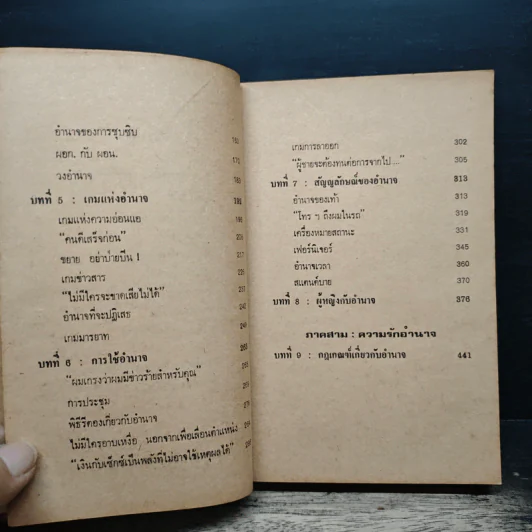 อำนาจของการซุบซิบ
ผอก. กับ ผอน.
วงอำนาจ
บทที่ 5 : เกมแห่งอำนาจ
เกมแห่งความอ่อนแอ
"คนดีเสร็จก่อน"
ขยาย อย่าป่ายปีน !
เกมข่าวสาร
"ไม่มีใครจะขาดเสียไม่ได้"
อำนาจที่จะปฏิเสธ
เกมมารยาท
บทที่ 6 : การใช้อำนาจ
"ผมเกรงว่าผมมีข่าวร้ายสำหรับคุณ"
การประชุม
พิธีรีตองเกี่ยวกับอำนาจ
ไม่มีใครอาบเหงื่อ, นอกจากเพื่อเลื่อนตำแหน่ง
"เงินกับเซ็กซ์เป็นพลังที่ไม่อาจใช้เหตุผลได้"
เกมการลาออก 302
"ผู้ชายจะต้องทนต่อการจากไป...." 305
บทที่ 7 : สัญญลักษณ์ของอำนาจ 313
อำนาจของเท้า 313
"โทร ฯ ถึงผมในรถ" 319
เครื่องหมายสถานะ 331
เฟอร์นิเจอร์ 345
อำนาจเวลา 360
สแตนด์บาย 370
บทที่ 8 : ผู้หญิงกับอำนาจ 376
ภาคสาม : ความรักอำนาจ
บทที่ 9 : กฎเกณฑ์เกี่ยวกับอำนาจ 441